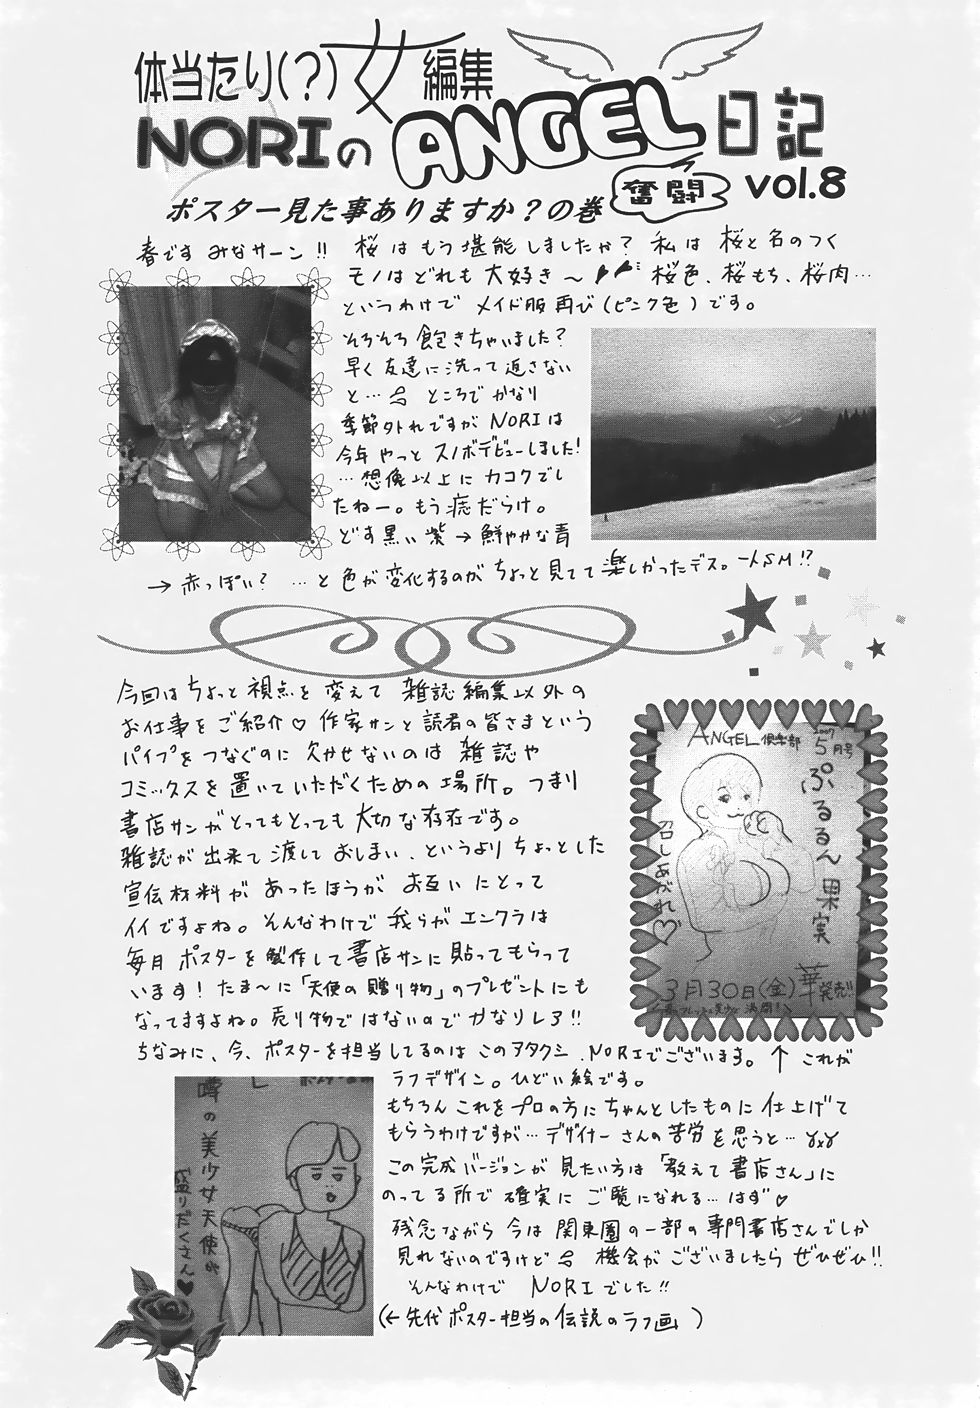 体当たり(?)女編集
NORIのANGEL日記
奮闘
vol.8
ポスター見た事ありますか？の巻
春です みなサーン!! 桜はもう堪能しましたか？ 私は 桜と名のつく
モノはどれも大好き〜 桜色、桜もち、桜肉…
というわけで メイド服再び(ピンク色)です。
そろそろ飽きちゃいました？
早く友達に洗って返さない
と… ところでかなり
季節外れですが NORIは
今年やっと スノボデビューしました!
…想像以上に カコクでし
たねー。もう痣だらけ。
どす黒い紫→鮮やかな青
→赤っぽい？ …と色が変化するのがちょっと見てて楽しかったデス。一人SM!?
今回はちょっと視点を変えて 雑誌編集以外の
お仕事をご紹介♡ 作家サンと読者の皆さまという
パイプをつなぐのに欠かせないのは 雑誌や
コミックスを置いていただくための場所。つまり
書店サンがとってもとっても大切な存在です。
雑誌が出来て渡しておしまい、というよりちょっとした
宣伝材料が あったほうが お互いにとって
イイですよね。そんなわけで我らがエンクラは
毎月ポスターを製作して書店サンに貼ってもらって
います！たま〜に「天使の贈り物」のプレゼントにも
なってますよね。売り物ではないのでかなりレア!!
ちなみに、今、ポスターを担当してるのは このアタクシ、NORIでございます。↑ これが
ラフデザイン。ひどい絵です。
もちろん これをプロの方にちゃんとしたものに仕上げて
もらうわけですが… デザイナーさんの苦労を思うと…
この完成バージョンが見たい方は「教えて書店さん」に
のってる所で確実にご覧になれる…はず♡
残念ながら今は関東圏の一部の専門書店さんでしか
見れないのですけど 機会がございましたら ぜひぜひ!!
そんなわけで NORIでした!!
(←先代ポスター担当の伝説のラフ画)
ANGEL倶楽部
5月号
ぷるるん果実
召しあがれ♡
3月30日(金)発売!!
噂の美少女天使
盛りだくさん♥